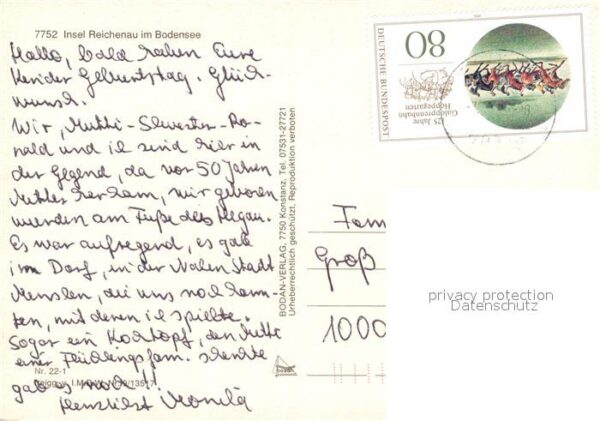 7752 Insel Reichenau im Bodensee
Hallo, bald haben Eure
Kinder Geburtstag. Glück-
wunsch.
Wir, Mutti - Schwester - Ro-
nald und ich sind hier in
der Gegend, da vor 50 Jahren
Mutter herkam, wir geboren
wurden am Fuße des
Es war aufregend, es gab
im Dorf, in der Nahen Stadt
Menschen, die uns noch kann-
ten, mit denen ich spielte.
Sogar ein Kochtopf, den Mutti
einer Flüchtlingsfam. schenkte
gab es noch!!
Herzlichst Monika
Nr. 22-1
BODAN-VERLAG, 7750 Konstanz, Tel. 07531-27721
Urheberrechtlich geschützt, Reproduktion verboten
80
DEUTSCHE BUNDESPOST
125 Jahre
Galopprennbahn
Hoppegarten
Fam
Groß
1000
privacy protection
Datenschutz